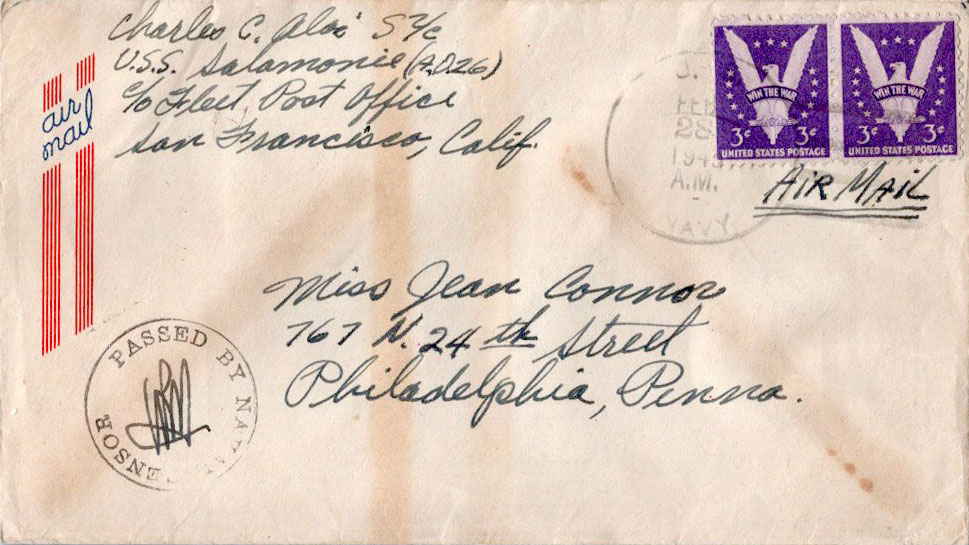 Charles C. Aloi S 2/c
U.S.S. Salamonie (A.O.26)
c/o Fleet Post Office
San Francisco, Calif.
air
mail
WIN THE WAR
3¢ 3¢
UNITED STATES POSTAGE
WIN THE WAR
3¢ 3¢
UNITED STATES POSTAGE
FEB
28
A.M.
NAVY
AIR MAIL
Miss Jean Connor
767 N. 24th Street
Philadelphia, Penna.
PASSED BY NAVAL
CENSOR